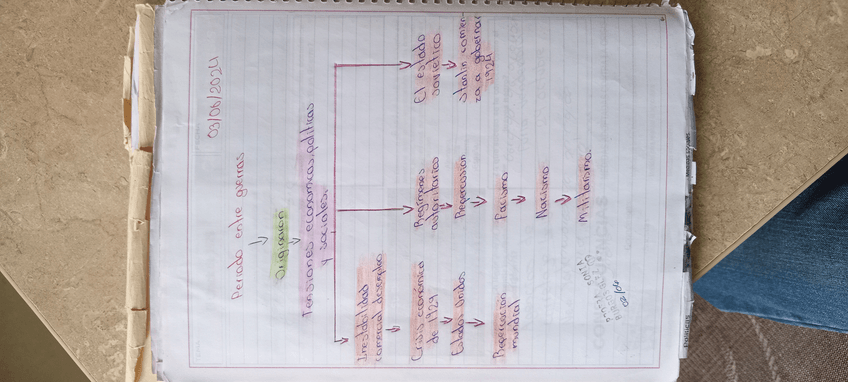 03/06/2024
Periodo entre guerras
Originaron
Tensiones economicas, politicas
y sociales.
Inestabilidad
comercial desempleo
Crisis económica
de 1929
Estados Unidos
Repercucion
mundial
Regimenes
autoritarios
Repercusion
Facismo
Nacismo
Militarismo.
El estado
sovietico
Stanlin comien
za a gobernar
1924